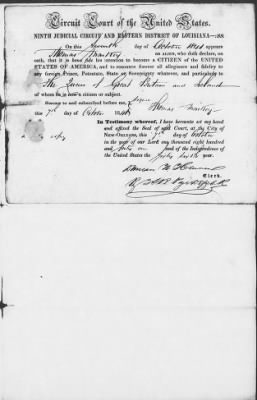 Circuit Court of the United States.
NINTH JUDICIAL CIRCUIT AND EASTERN DISTRICT OF LOUISIANA
On this Seventh day of October 1841 appears
Thomas
an ALIEN, who doth declare, on
oath, that it is bona fide his intention to become a CITIZEN of the UNITED
STATES OF AMERICA, and to renounce forever all allegiance and fidelity to
any foreign Prince, Potentate, State or Sovereignty whatever, and particularly to
The Queen of Great Britain and Ireland
of whom he is now a citizen or subject.
Sworn to and subscribed before me, Signed
7th day of October 1841 Thomas
a copy
In Testimony whereof, I have hereunto set my hand
and affixed the Seal of said Court, at the City of
New-Orleans, this 7th day of October
in the year of our Lord one thousand eight hundred
and forty one and of the Independence of
the United States the year.
Clerk.